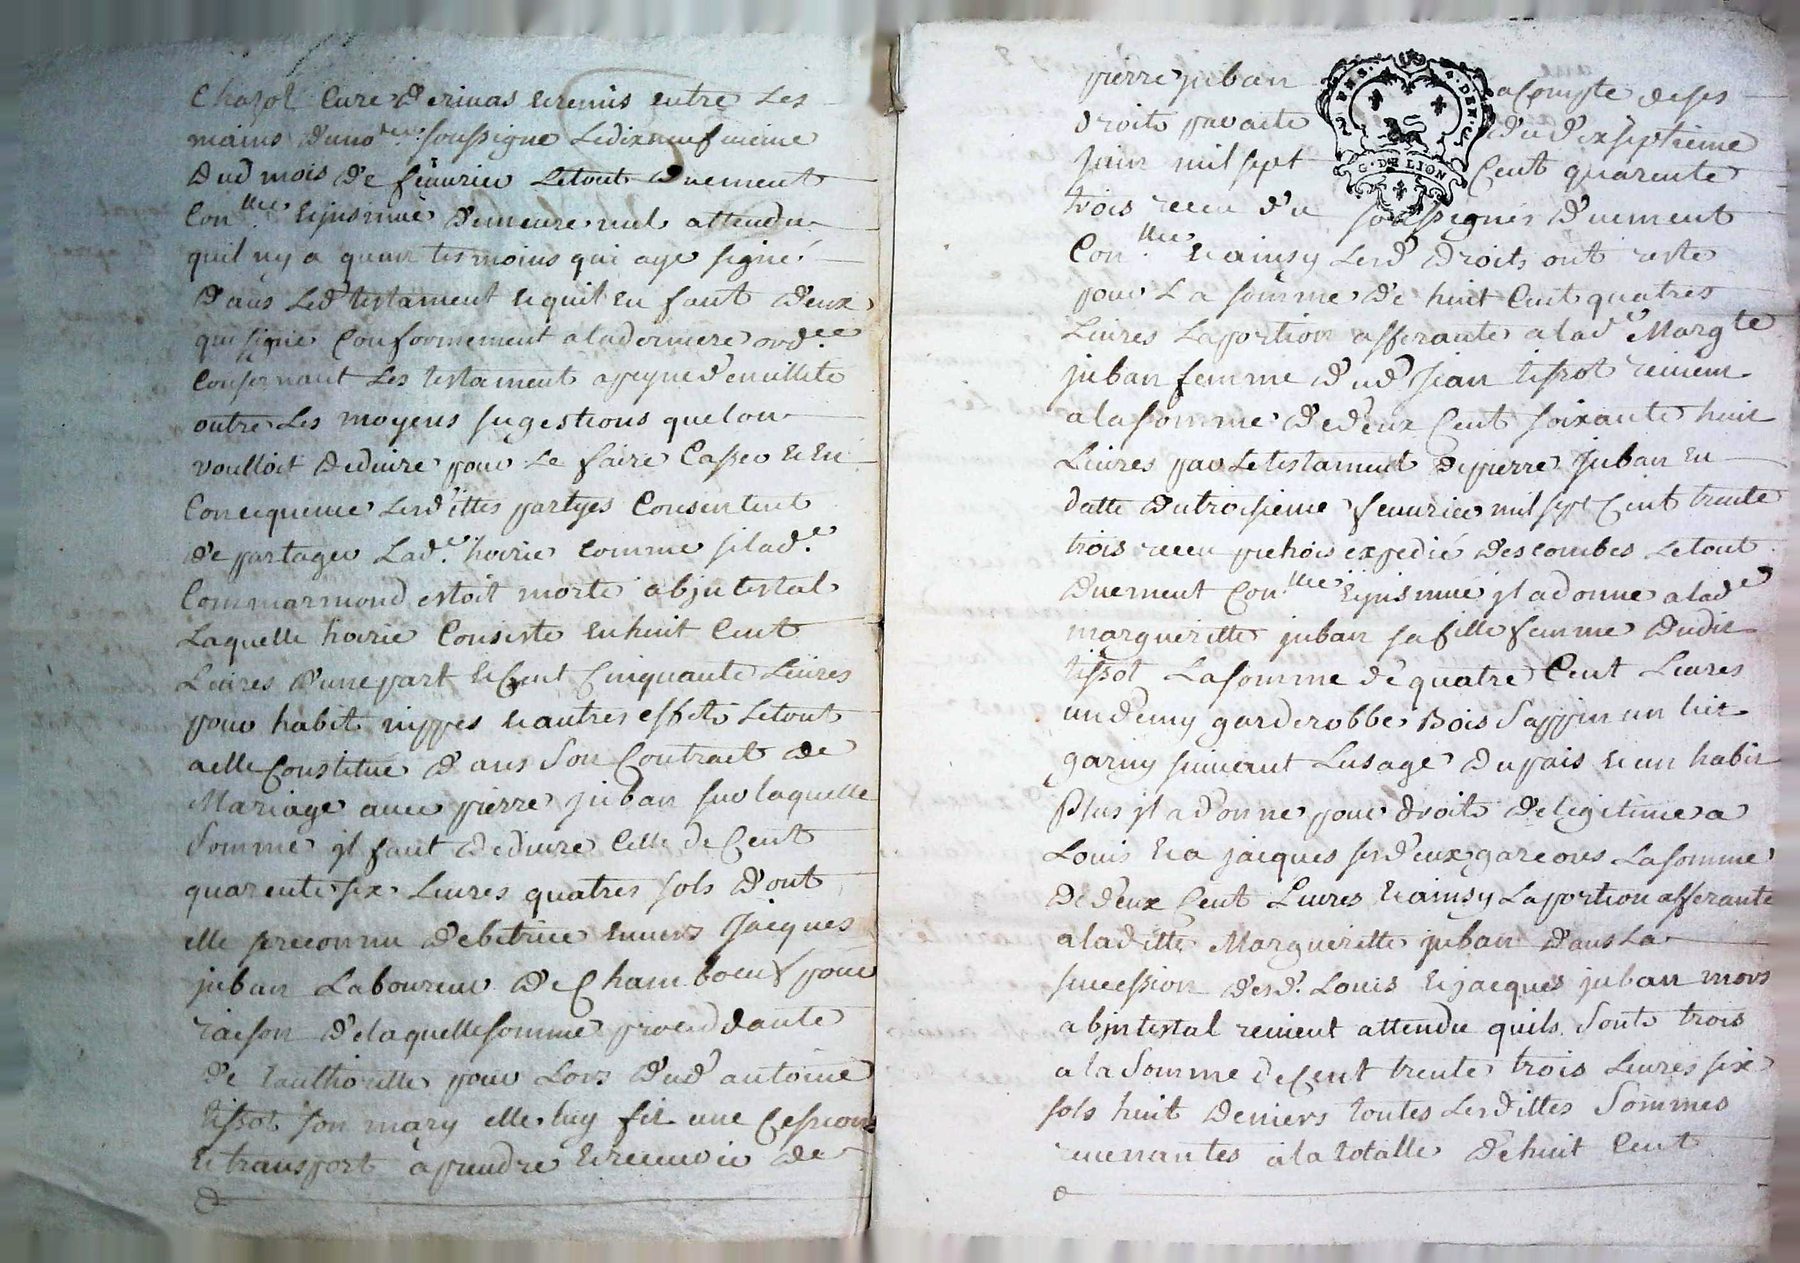 Chazol Curé de rivas et remis entre les
mains du no.re soussigné le dix neufvieme
dud mois de fevurier le tout duement
Con.llé et insinué demeure nul attendu
quil ny a quun tesmoins qui aye signé
dans led testament et quil en faut deux
qui signe Conformement a la derniere ord.ce
Consernant les testament a peyne de nullite
outre les moyens sugestions que lon
voulloit deduire pour le faire Casser et En
Concequence lesdittes partyes Consentent
de partager lad.e hoirie comme si lad.e
Commarmond estoit morte abjntestat
Laquelle hoirie Consiste en huit Cent
Livres dune part et Cent Cinquante Livres
pour habit nippes et autres effets le tout
a elle Constitué dans son Contract de
Mariage avec pierre juban sur laquelle
somme jl faut deduire Celle de Cent
quarente six Livres quatres sols dont
elle se reconnu debitrice envers Jacques
juban Laboureur de Chambœuf pour
raison de laquelle somme procendante
de lauthoritte pour Lors dud antoine
tissot son mary elle luy fit une Cession
et transport à prendre et recevoir de
pierre juban a Compte de ses
droits par acte du dix septieme
juin mil sept Cent quarente
trois receu du soussignés duement
Con.llé et ainsy lesd droits ont reste
pour La somme de huit Cent quatres
Livres La portion afferante a lad.e Marg.te
juban femme dud jean tissot revient
a la somme de deux Cent soixante huit
Livres par le testament de pierre juban en
datte du troisieme fevurier mil sept Cent trente
trois receu prehois expedié descombes le tout
duement Con.llé et insinué jl a donné a lad.e
margueritte juban sa fille femme dudit
tissot La somme de quatre Cent Livres
un demy garderobbe Bois sappin un lict
garny suivant Lusage du païs et un habit
Plus jl a donné pour droits de legitime a
Louis et a jacques ses deux garcons La somme
de deux Cent Livres et ainsy La portion afferante
a la ditte Margueritte juban dans La
succession desd. Louis et jacques juban mors
abjntestat revient attendu quils sonts trois
a la somme de Cent trente trois Livres six
sols huit deniers toutes lesdittes sommes
revenantes a la totalle de huit Cent
G. DE LION